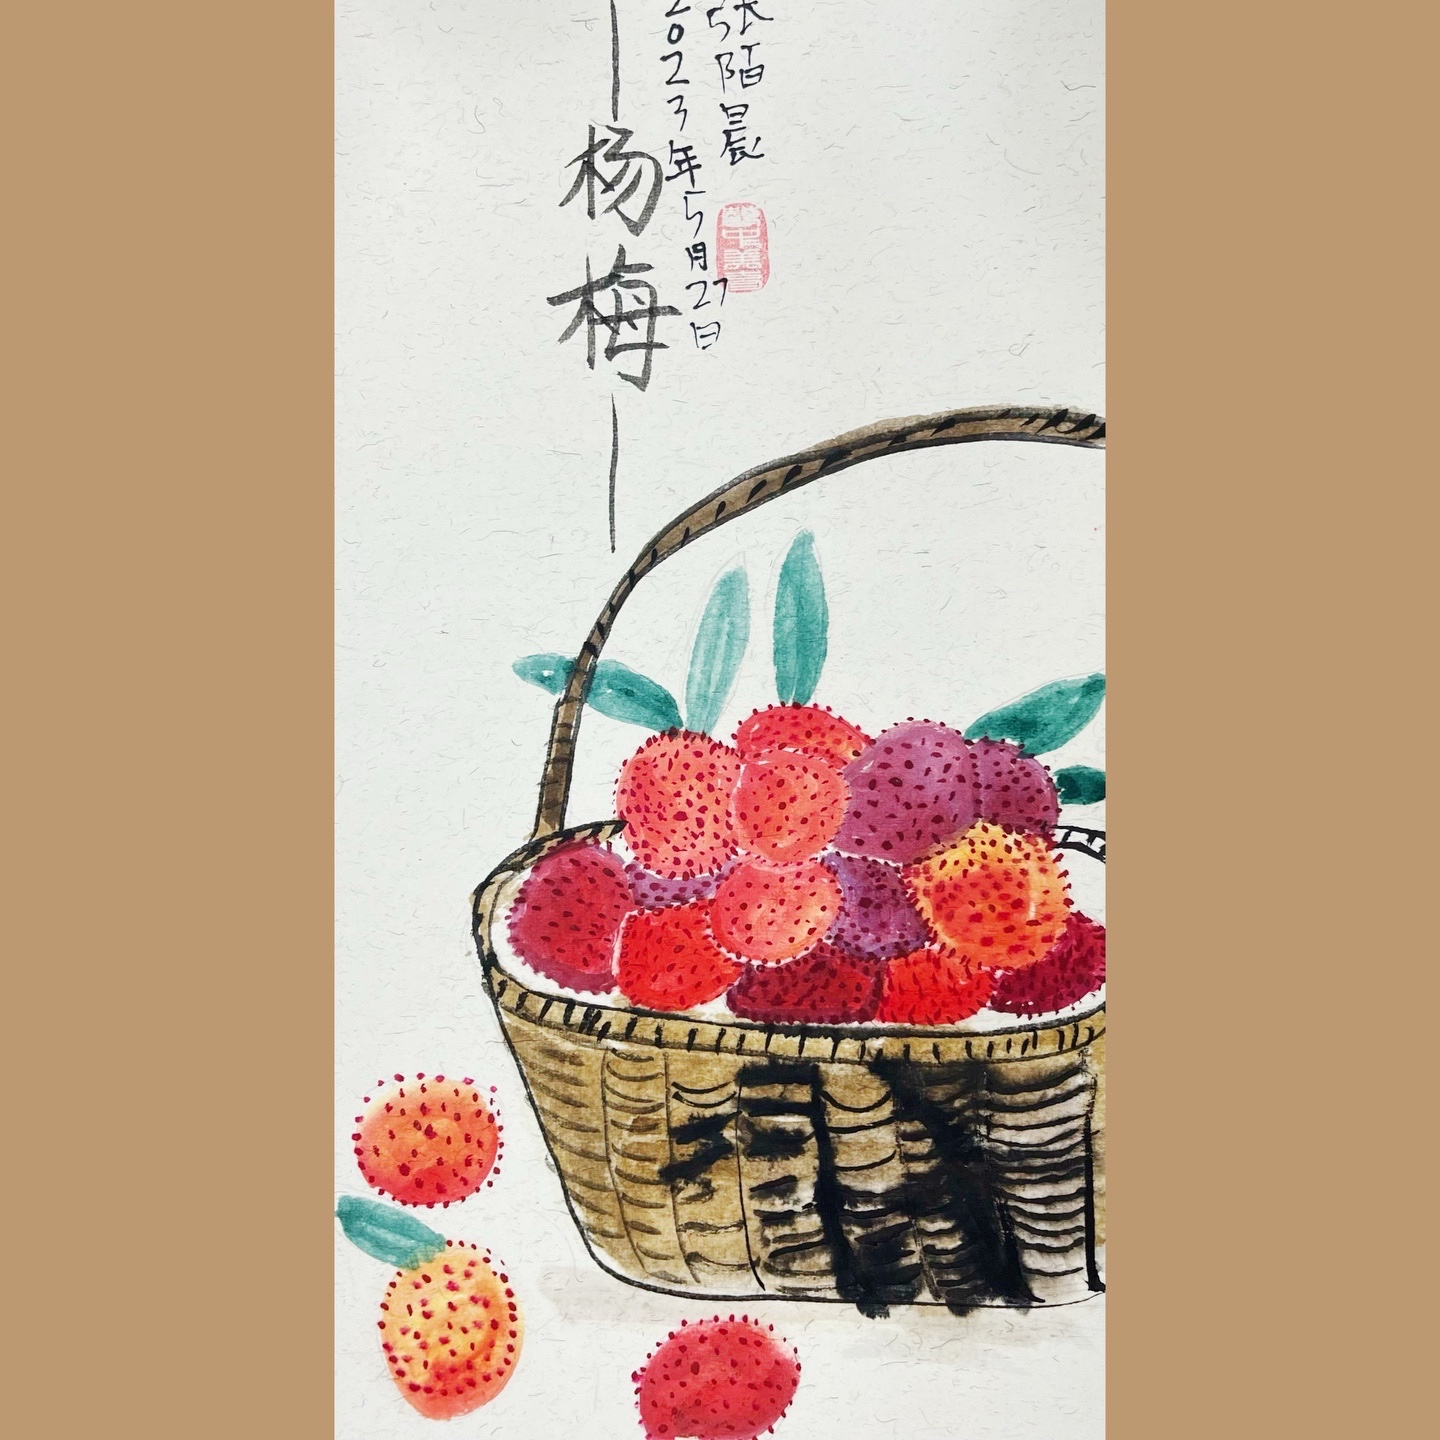 张陌晨
2023年5月27日
杨梅